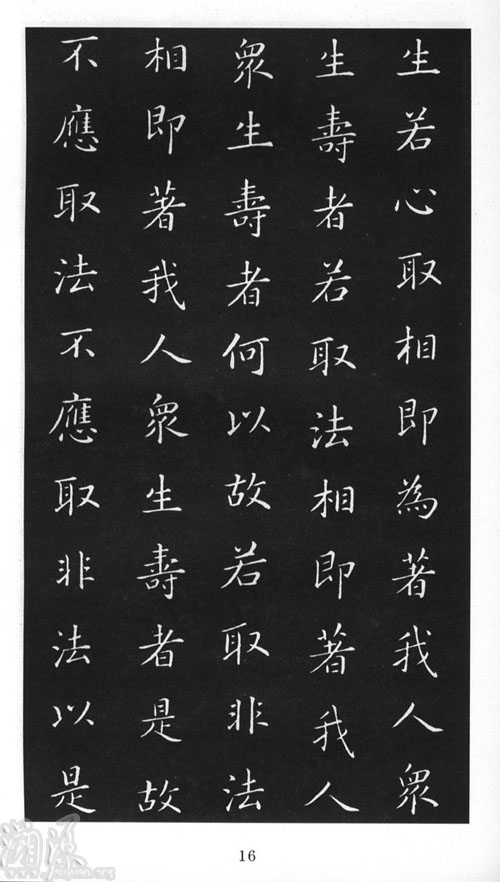 生若心取相即為著我人眾
生壽者若取法相即著我人
眾生壽者何以故若取非法
相即著我人眾生壽者是故
不應取法不應取非法以是
16